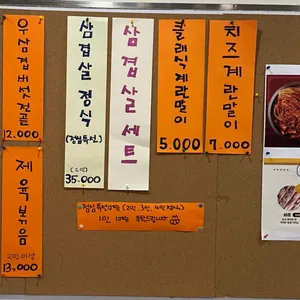 우삼겹버섯전골
12.000
삼겹살 정식
(점심특선)
(2인)
35.000
삼겹살 세트
클래식계란말이
5.000
치즈계란말이
7.000
제육볶음
2인이상
13.000
점심특선메뉴는 (2인, 3인, 4인 정식)
1인 1메뉴 부탁드립니다